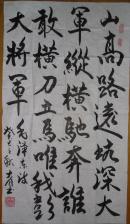 山高路遠坑深大
軍縱橫馳奔誰
敢橫刀立馬唯我彭
大將軍 毛澤東